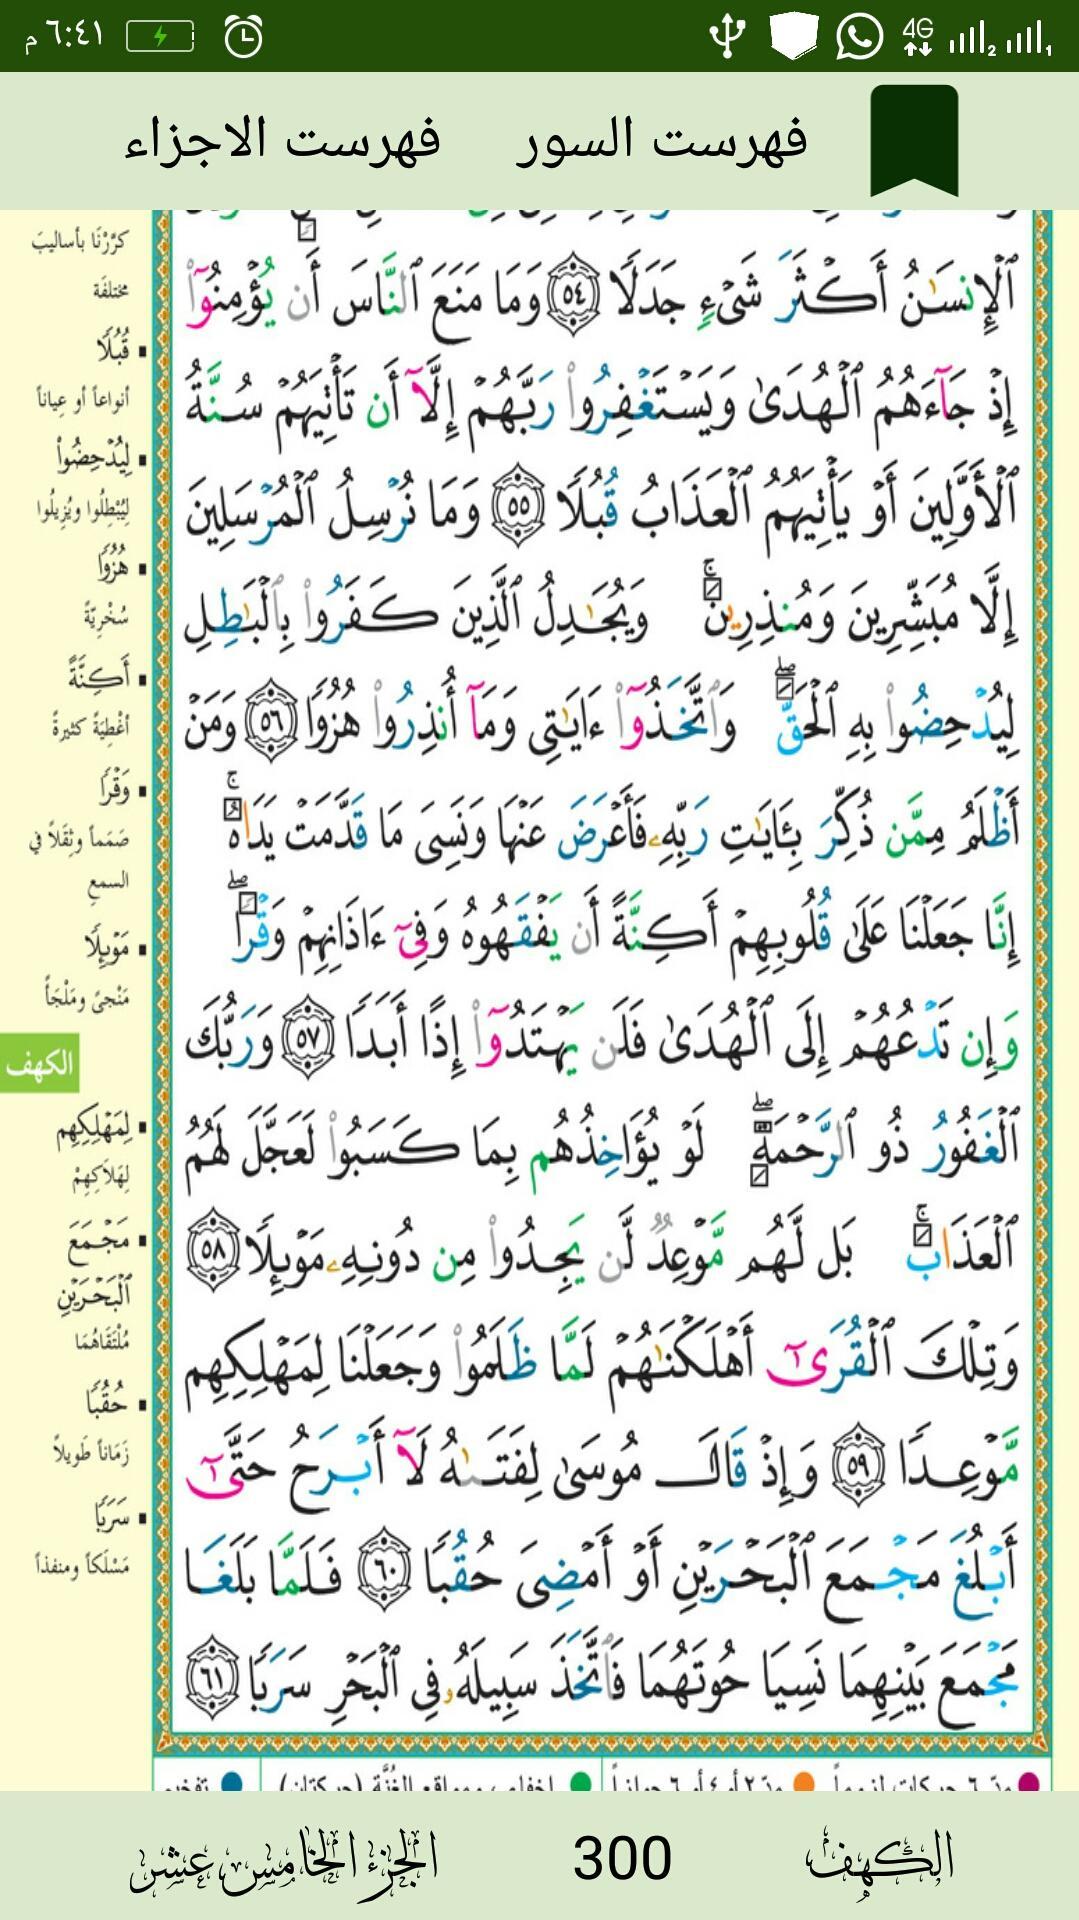 ٦:٤١ م
4G
2
1
فهرست السور
فهرست الاجزاء
ٱلْإِنسَـٰنُ أَكْثَرَ شَىْءٍ جَدَلًا ٥٤ وَمَا مَنَعَ ٱلنَّاسَ أَن يُؤْمِنُوٓا۟
إِذْ جَآءَهُمُ ٱلْهُدَىٰ وَيَسْتَغْفِرُوا۟ رَبَّهُمْ إِلَّآ أَن تَأْتِيَهُمْ سُنَّةُ
ٱلْأَوَّلِينَ أَوْ يَأْتِيَهُمُ ٱلْعَذَابُ قُبُلًا ٥٥ وَمَا نُرْسِلُ ٱلْمُرْسَلِينَ
إِلَّا مُبَشِّرِينَ وَمُنذِرِينَ ۚ وَيُجَـٰدِلُ ٱلَّذِينَ كَفَرُوا۟ بِٱلْبَـٰطِلِ
لِيُدْحِضُوا۟ بِهِ ٱلْحَقَّ ۖ وَٱتَّخَذُوٓا۟ ءَايَـٰتِى وَمَآ أُنذِرُوا۟ هُزُوًا ٥٦ وَمَنْ
أَظْلَمُ مِمَّن ذُكِّرَ بِـَٔايَـٰتِ رَبِّهِۦ فَأَعْرَضَ عَنْهَا وَنَسِىَ مَا قَدَّمَتْ يَدَاهُ ۚ
إِنَّا جَعَلْنَا عَلَىٰ قُلُوبِهِمْ أَكِنَّةً أَن يَفْقَهُوهُ وَفِىٓ ءَاذَانِهِمْ وَقْرًا ۖ
وَإِن تَدْعُهُمْ إِلَى ٱلْهُدَىٰ فَلَن يَهْتَدُوٓا۟ إِذًا أَبَدًا ٥٧ وَرَبُّكَ
ٱلْغَفُورُ ذُو ٱلرَّحْمَةِ ۖ لَوْ يُؤَاخِذُهُم بِمَا كَسَبُوا۟ لَعَجَّلَ لَهُمُ
ٱلْعَذَابَ ۚ بَل لَّهُم مَّوْعِدٌ لَّن يَجِدُوا۟ مِن دُونِهِۦ مَوْئِلًا ٥٨
وَتِلْكَ ٱلْقُرَىٰٓ أَهْلَكْنَـٰهُمْ لَمَّا ظَلَمُوا۟ وَجَعَلْنَا لِمَهْلِكِهِم
مَّوْعِدًا ٥٩ وَإِذْ قَالَ مُوسَىٰ لِفَتَىٰهُ لَآ أَبْرَحُ حَتَّىٰٓ
أَبْلُغَ مَجْمَعَ ٱلْبَحْرَيْنِ أَوْ أَمْضِىَ حُقُبًا ٦٠ فَلَمَّا بَلَغَا
مَجْمَعَ بَيْنِهِمَا نَسِيَا حُوتَهُمَا فَٱتَّخَذَ سَبِيلَهُۥ فِى ٱلْبَحْرِ سَرَبًا ٦١
كرَّرْنَا بأساليبَ
مختلفَة
قُبُلًا
أنواعاً أو عِياناً
لِيُدْحِضُوا۟
لِيُبْطِلُوا ويُزِيلُوا
هُزُوًا
سُخْرِيَّةً
أَكِنَّةً
أغْطِيَةً كثيرةً
وَقْرًا
صَمَماً وثِقَلاً في
السمعِ
مَوْئِلًا
مَنْجىً ومَلْجَأً
الكهف
لِمَهْلِكِهِم
لِهَلَاكِهِمْ
مَجْمَعَ
ٱلْبَحْرَيْنِ
مُلْتَقَاهُمَا
حُقُبًا
زَمَاناً طَويلاً
سَرَبًا
مَسْلَكاً ومنفذاً
مدّ ٦ حركات لزوماً
مدّ ٢ أو ٤ أو ٦ جوازاً
إخفاء، ومواقع الغُنَّة (حركتان)
تفخيم
الكهف
300
الجزء الخامس عشر